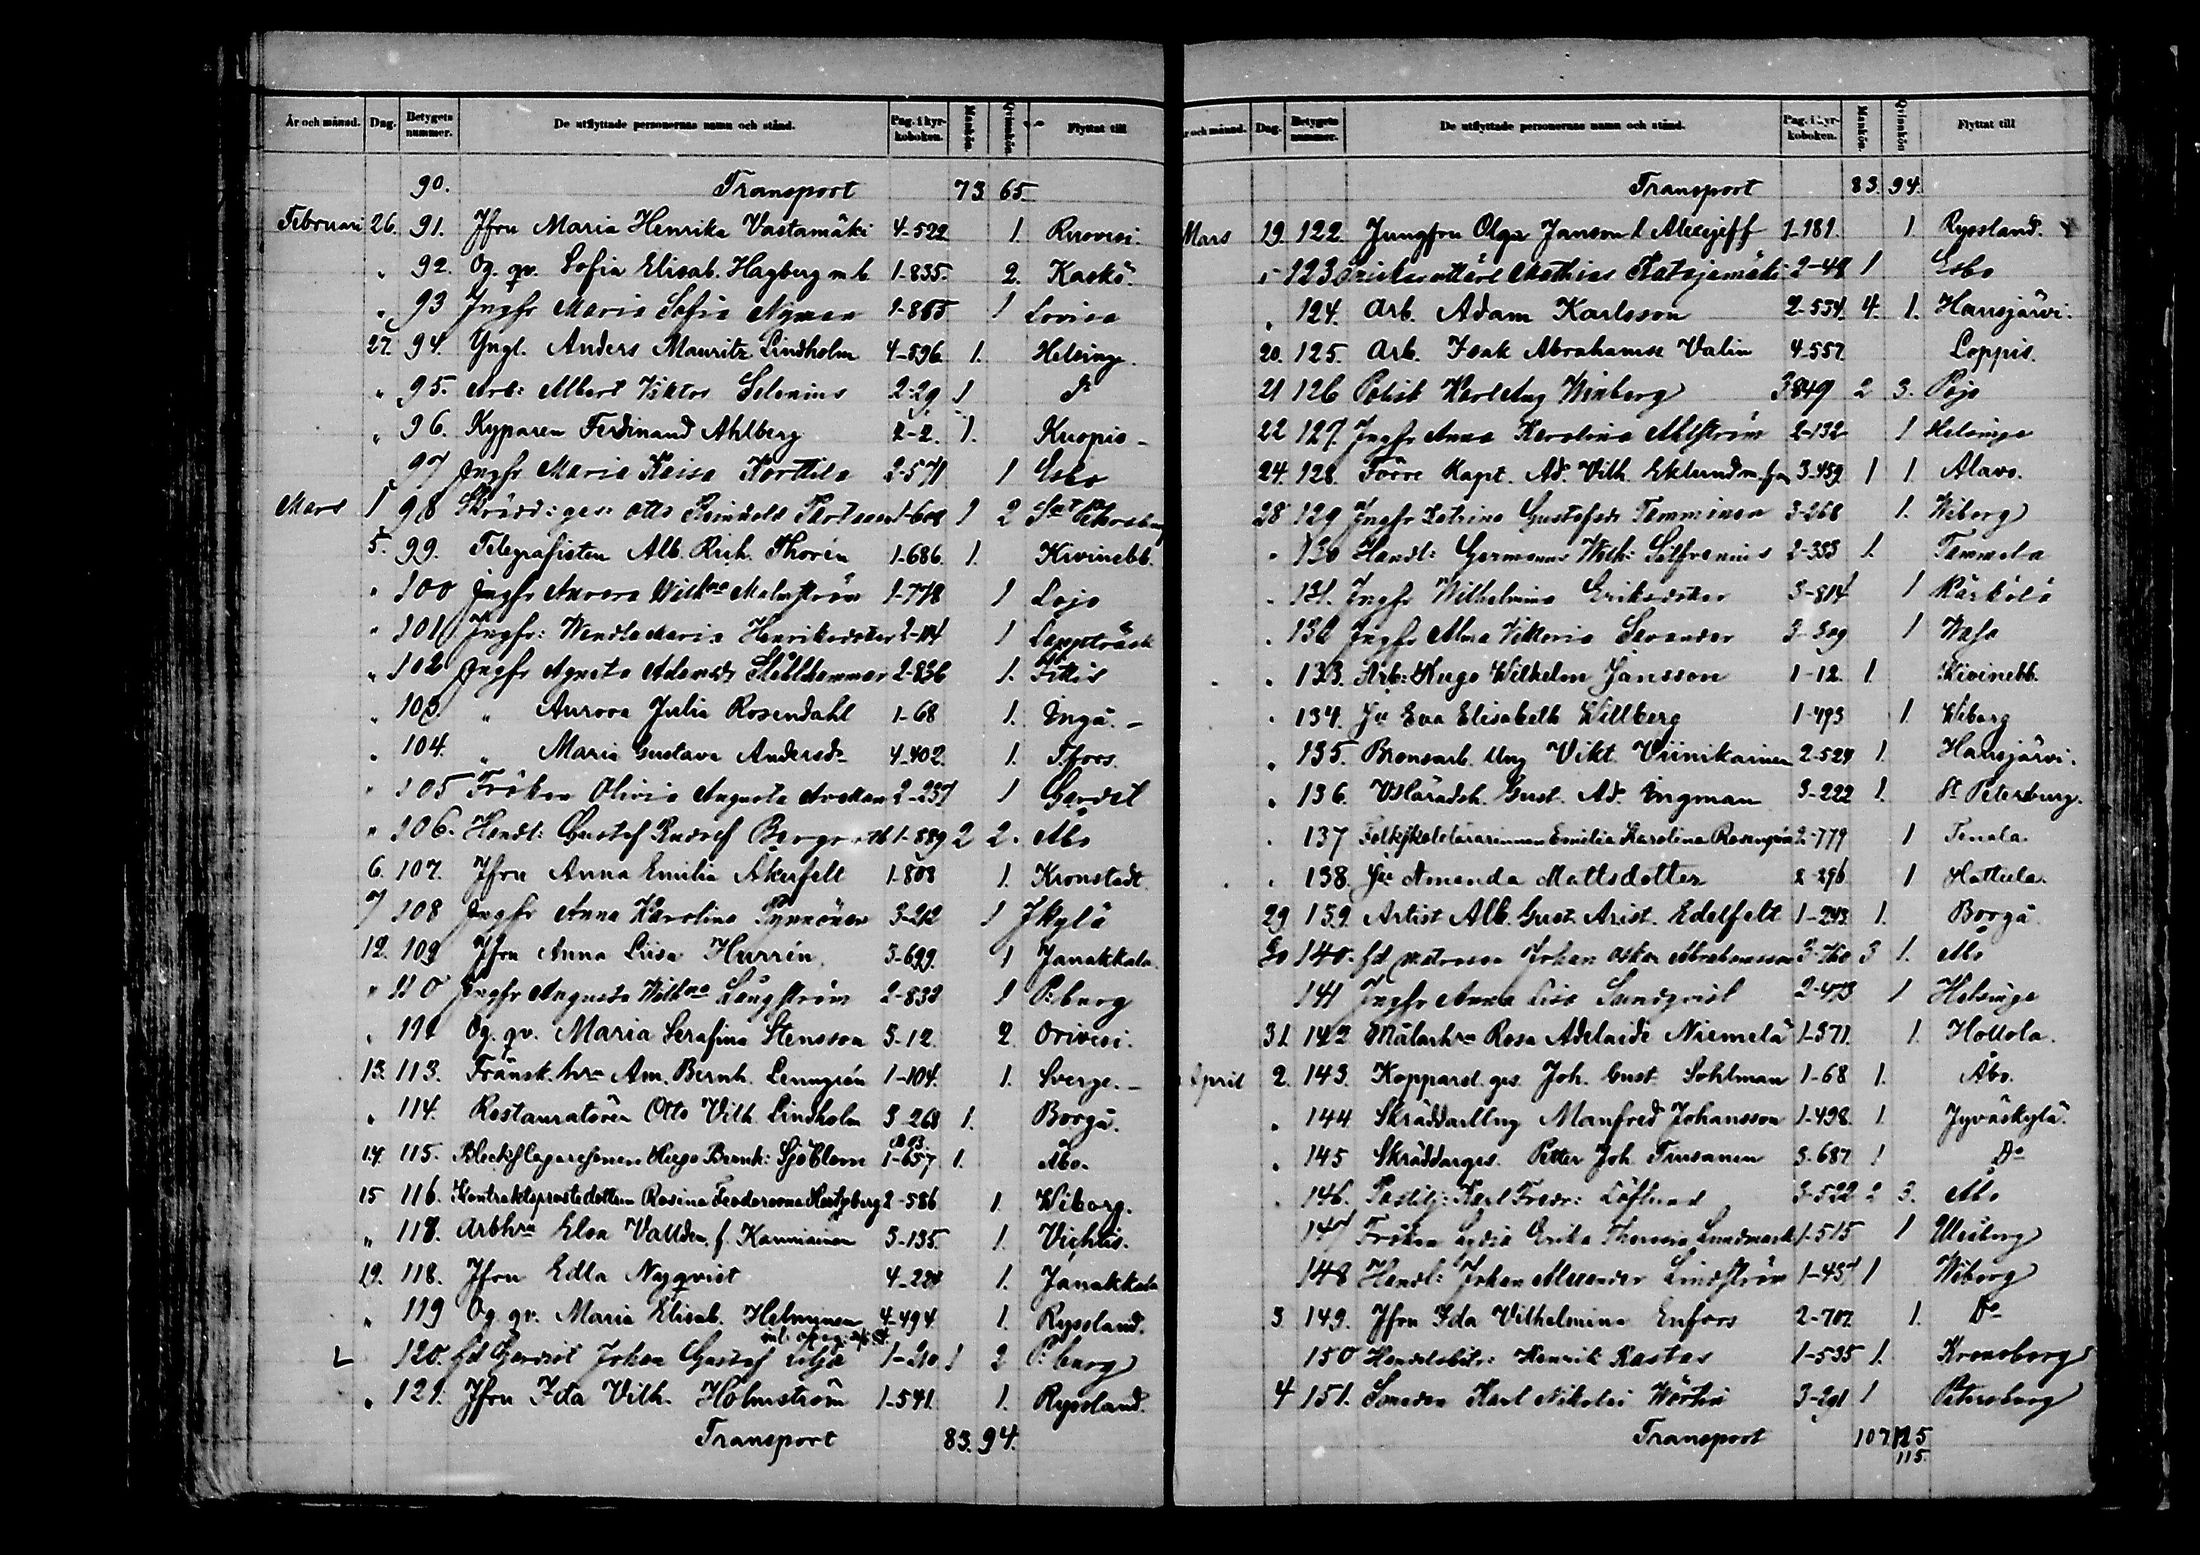 År och månad. Dag. Betygets nummer. De utflyttade personernas namn och stånd. Pag. i kyrkoboken. Mankön. Qvinnkön. Flyttat till
90. Transport 73 65.
Februari 26. 91. Jfru Maria Henrika Vastamäki 4-522 1. Ruovesi.
" 92. Og. qv. Sofia Elisab. Hagberg m. b. 1-835. 2. Kaskö.
" 93 Jngfr Maria Sofia Nyman 1-865 1 Lovisa
27. 94. Yngl. Anders Mauritz Lindholm 4-596 1. Helsinge.
" 95. Arb: Albert Viktor Selenius 2-29 1 do
" 96. Kyparen Ferdinand Ahlberg 2-2. 1. Kuopio -
97 Jngfr Maria Kaisa Korttila 2-571 1 Esbo
Mars 1 98 Skrädd: ges: Otto Reinhold 1-608 1 2 St Petersburg
5. 99. Telegrafisten Alb. Rich. Thorén 1-686. 1. Kivinebb.
" 100 Jngfr Aurora Wilhna Malmström 1-778 1 Lojo
" 101 Jngfr: Wendla Maria Henriksdotter 2-114 1 Lappträsk
" 102 Jngfr Agneta Adamsdr Stålhammar 2-836 1. Fittis
" 103. " Aurora Julia Rosendahl 1-68 1. Ingå. -
" 104. " Maria Gustava Andersdr 4-402. 1. T.fors.
" 105 Fröken Olivia Augusta 2-237 1 Gardet
" 106. Handl: Gustaf Rudolf 1-889 2 2. Åbo
6. 107. Jfru Anna Emilia Åkerfelt 1-808 1. Kronstadt.
7 108 Jngfr Anna Karolina Pynnönen 3-212 1 Jkylä
12. 109 Jfru Anna Lisa Hurrén 3-699. 1 Janakkala.
" 110 Jngfr Augusta Wilhna Långström 2-832 1 P:burg
" 111 Og. qv. Maria Serafina Stensson 3-12. 2. Orivesi.
13. 113. Fränsk. hru Am. Bernh. Lenngrén 1-104. 1. Sverge. -
" 114. Restauratören Otto Vilh. Lindholm 3-268 1. Borgå.
14. 115. Bleckslagaresonen Hugo Bernh: Sjöblom 1-657 1. Åbo.
15 116. Kontraktsprostdottern Rosina Feodorovna Hertzberg 2-586 1. Wiborg.
" 118. Arbhru Elsa Valldén, f. Kanniainen 3-135. 1. Vichtis.
19. 118. Jfru Edla Nyqvist 4-224 1. Janakkala
" 119 Og. qv. Maria Elisab. Helminen 4-494. 1. Ryssland.
120. fd Gardist Johan Gustaf Lilja 1-210 1 2 P:burg
" 121. Jfru Ida Vilh. Holmström 1-541. 1. Ryssland.
Transport 83. 94.
År och månad. Dag. Betygets nummer. De utflyttade personernas namn och stånd. Pag. i kyrkoboken. Mankön. Qvinnkön Flyttat till
Transport 83. 94.
Mars 19. 122. Jungfru Olga Janson l. Alexejeff 1-181. 1. Ryssland.
" 123 Mathias Katajamäki 2-48 1 Esbo
" 124. Arb. Adam Karlsson 2-534. 4. 1. Hausjärvi.
20. 125. Arb. Isak Abrahamss. Valin 4-557. Loppis.
21 126 Polisk Karl Aug Winberg 3-849 2 3. Pojo
22 127. Jngfr Anna Karolina Ahlström 2-132 1 Helsinge
24. 128. Förre Kapt. Ad. Vilh. Eklund m. fru 3-459. 1 1. Alavo.
28 129 Jngfr Katrina Gustafsdr Tamminen 3-268 1. Wiborg
" 130 Handl: Germanus Wilh: Silfvenius 2-333 1. Tammela
" 131. Jngfr Wilhelmina Eriksdotter 3-814 1 Kärkölä
" 132 Jngfr Alma Viktoria Savander 3-309 1 Wasa
" 133. Arb: Hugo Wilhelm Jansson 1-12. 1. Kivinebb.
" 134. Ju Eva Elisabeth Willberg 1-493 1. Wiborg
" 135. Bronsarb. Aug Vikt. Viinikainen 2-524 1. Hausjärvi.
" 136. Gust. Ad. Ingman 3-222 1. St Petersburg.
" 137 Folkskolelärarinnan Emilia Karolina Rosengren 2-779 1 Tenala.
" 138. Ju Amanda Mattsdotter 2-296 1 Hattula.
29 139. Artist Alb. Gust. Arist. Edelfelt 1-243. 1. Borgå.
30 140. fd matrosen Johan Oskar Abrahamsson 3-760 3 1. Åbo
141 Jngfr Anna Lisa Sundqvist 2-473 1 Helsinge
31. 142 Målarhru Rosa Adelaide Niemelä 1-371. 1. Hollola.
April 2. 143. Kopparsl. ges. Joh. Gust. Sohlman 1-68 1. Åbo.
" 144 Skräddarllng Manfred Johansson 1-498. 1. Jyväskylä.
" 145 Skräddarges. Petter Joh. Tiusanen 3-687 1 Do
" 146. Postilj: Karl Fredr: Löflund 3-522 2 3. Åbo
147 Fröken Lydia Erika Theresia Lundmark 1-515 1 Uleåborg
148 Handl: Johan Alexander Lindström 1-437 1 Wiborg
3 149. Jfru Ida Vilhelmina Enfors 2-707. 1. Do
150 Handelsbitr: Henrik Rastas 1-535 1. Kronoborg
4 151. Smeden Karl Nikolai 3-291 1 Petersburg
Transport 107. 125
115.